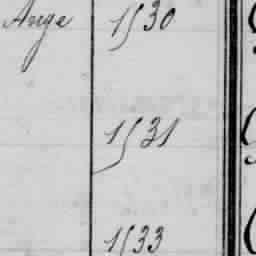 Ange 1530
1531
1533